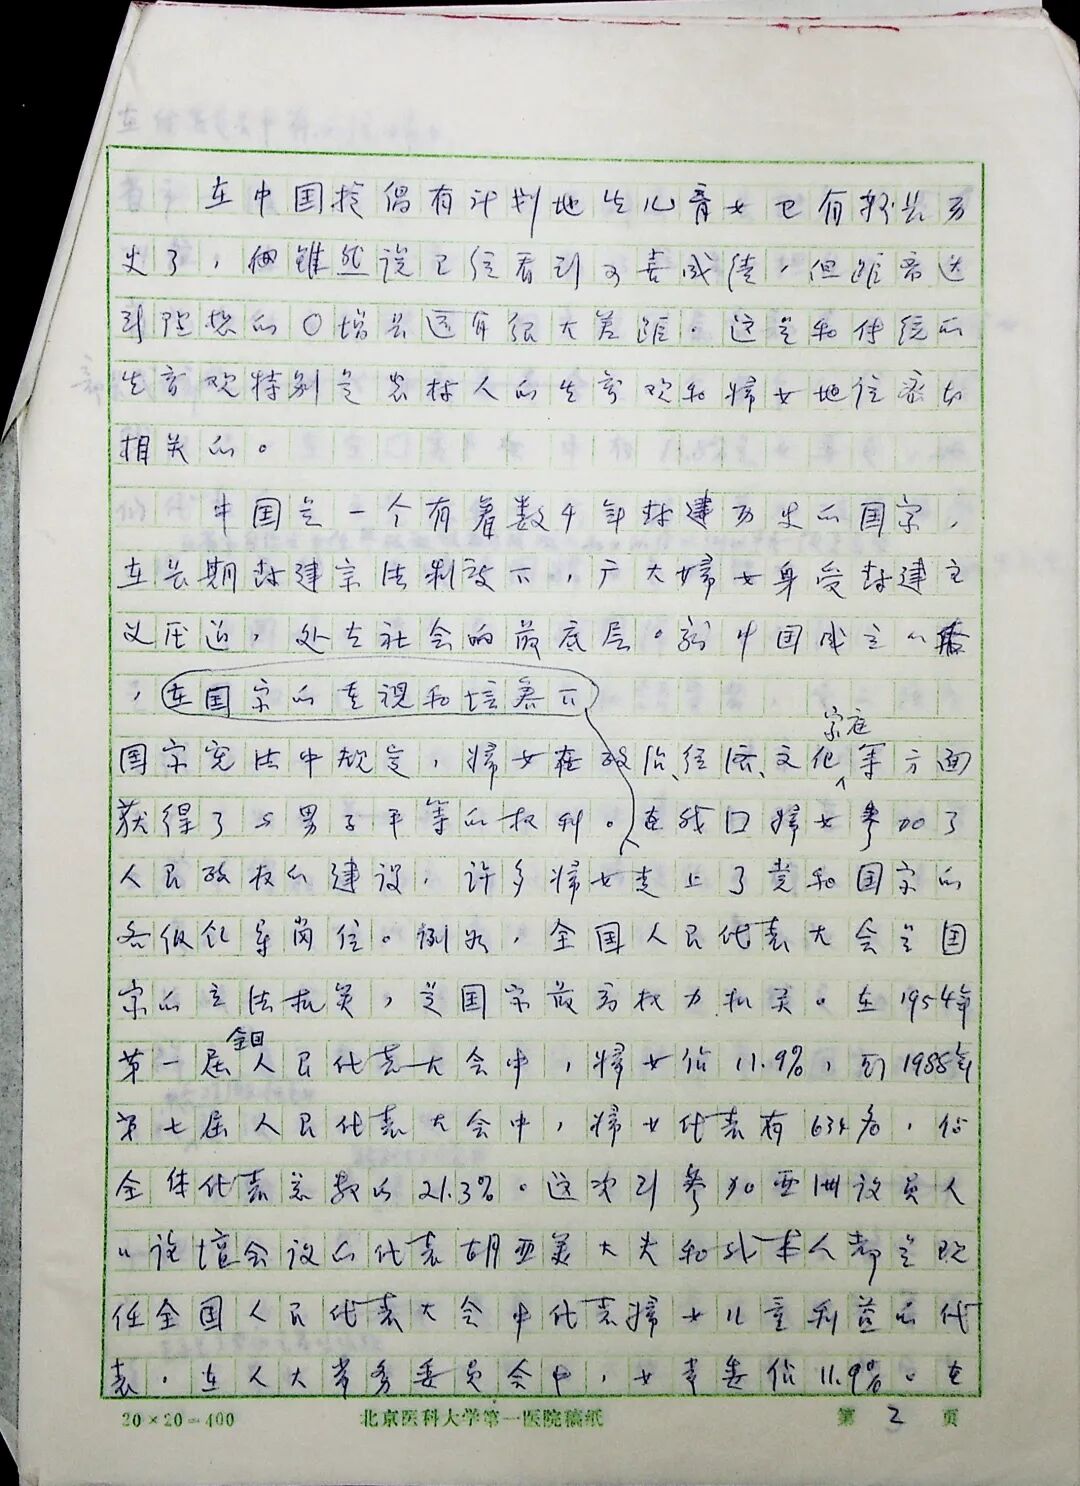 在中国提倡有计划地生儿育女已有较长历
史了，但虽然说已经看到可喜成绩，但距离达
到理想的〇增长还有很大差距。这是和传统的
生育观特别是农村人的生育观和婦女地位密切
相关的。
中国是一个有着数千年封建历史的国家，
在长期封建宗法制度下，广大婦女身受封建主
义压迫，处在社会的最底层。新中国成立以
，在国家的重视和培养下
家庭
国家宪法中规定，婦女在政治、经济、文化等方面
获得了与男子平等的权利。在我国婦女参加了
人民政权的建设，许多婦女走上了党和国家的
各级领导岗位。例如，全国人民代表大会是国
家的立法机关，是国家最高权力机关。在1954年
全国
第一届人民代表大会中，婦女佔11.9%，到1988年
第七届人民代表大会中，婦女代表有634名，佔
全体代表总数的21.3%。这次到参加亚洲议员人
口论壇会议的代表胡亚美大夫和我本人都是现
任全国人民代表大会中代表婦女儿童利益的代
表。在人大常务委员会中，女常委佔11.9%。在
20×20=400 北京医科大学第一医院稿纸 第 2 页